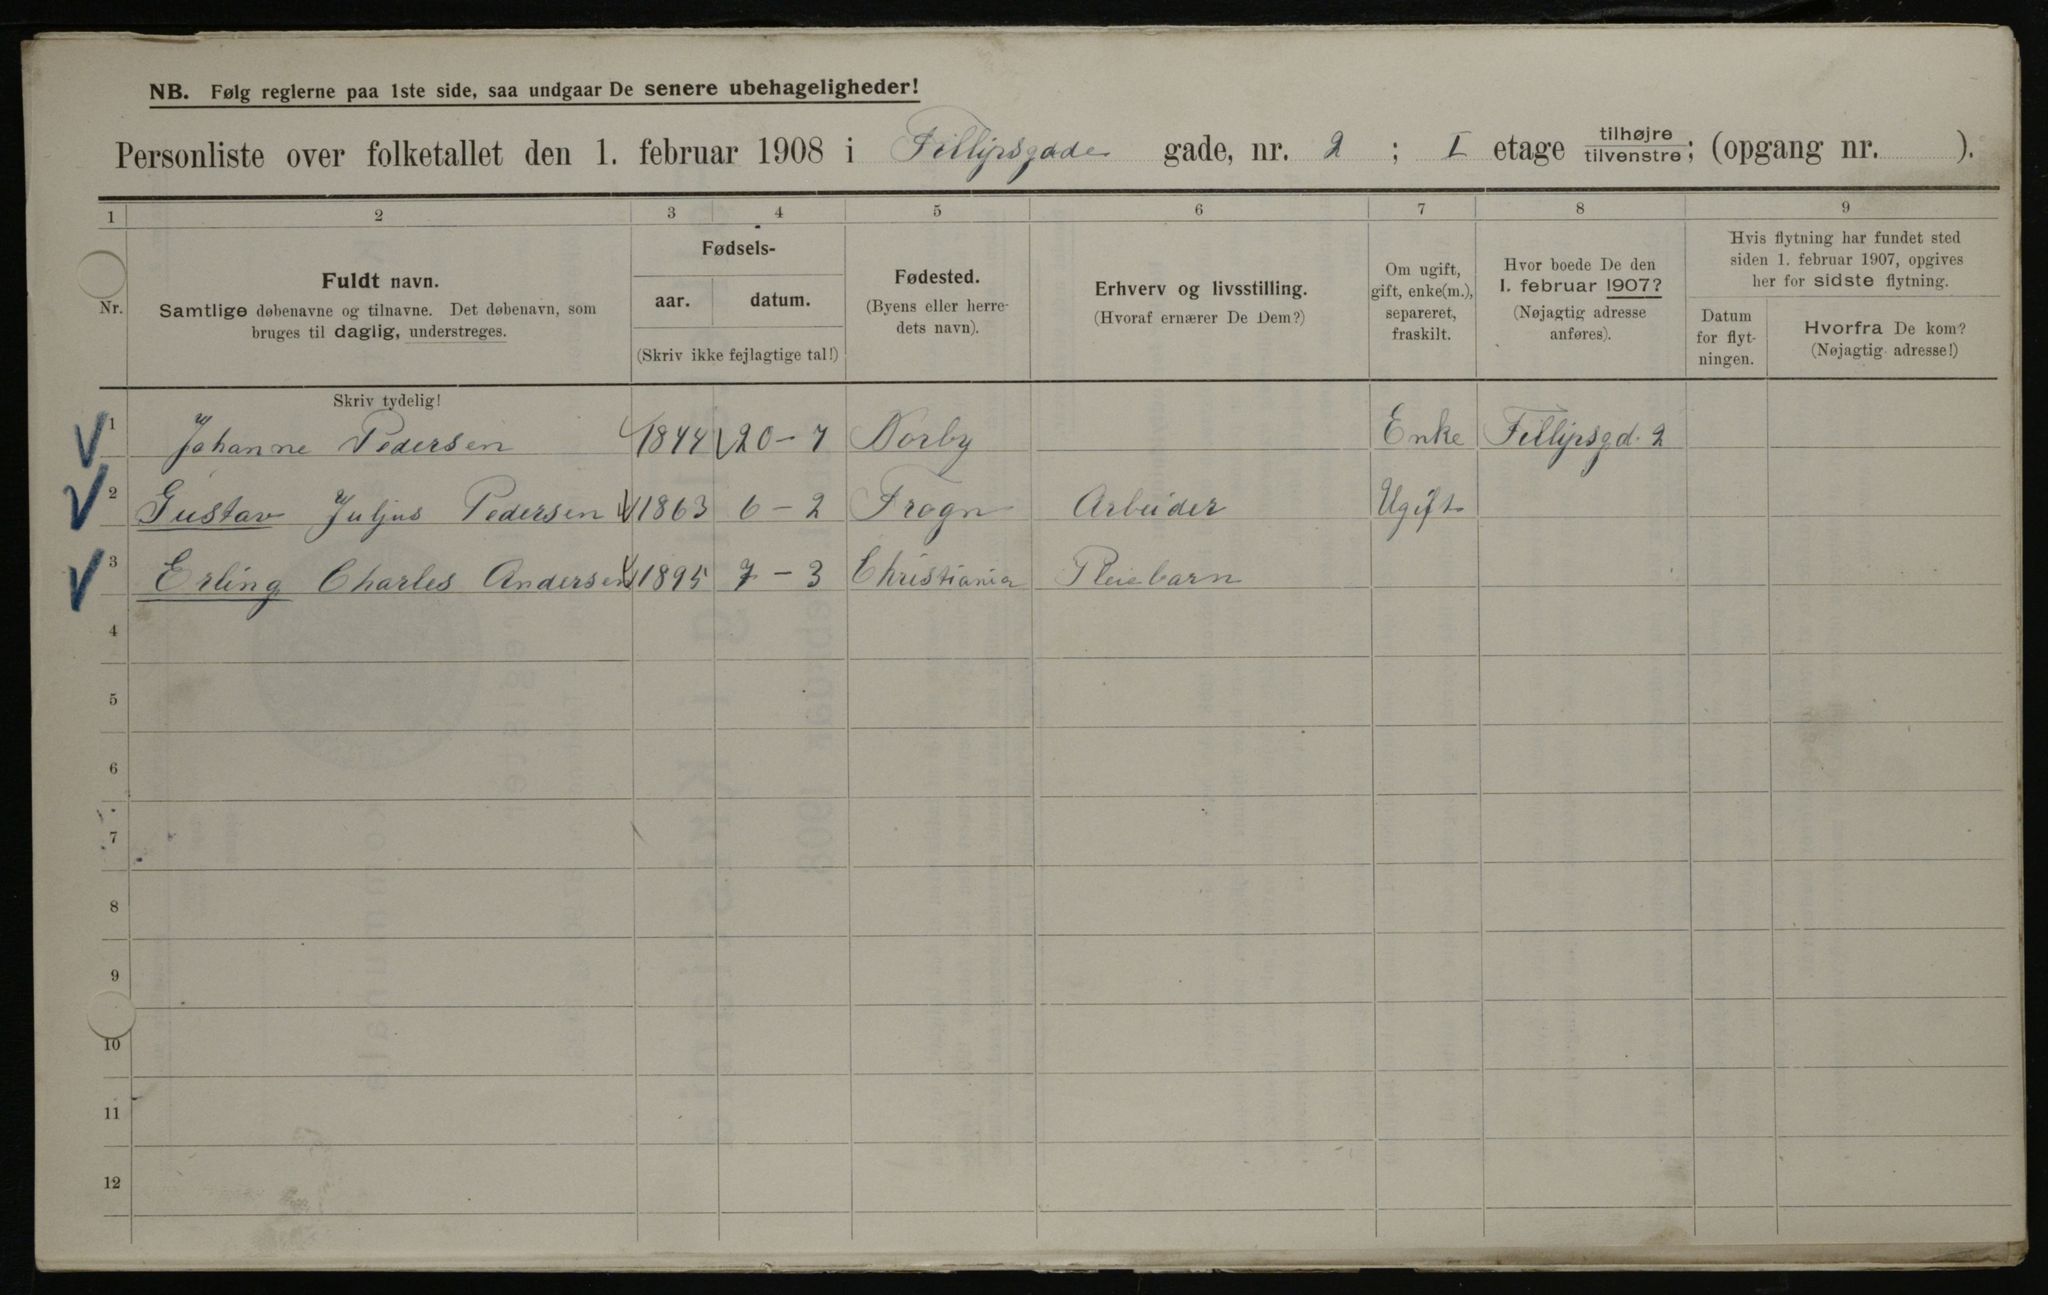 NB. Følg reglerne paa 1ste side, saa undgaar De senere ubehageligheder!
Personliste over folketallet den 1. februar 1908 i Fillipsgade gade, nr. 2 ; I etage tilhøjre/tilvenstre; (opgang nr. ).
1 2 3 4 5 6 7 8 9
Nr.
Fuldt navn.
Samtlige døbenavne og tilnavne. Det døbenavn, som
bruges til daglig, understreges.
Fødsels-
aar. datum.
(Skriv ikke fejlagtige tal!)
Fødested.
(Byens eller herre-
dets navn).
Erhverv og livsstilling.
(Hvoraf ernærer De Dem?)
Om ugift,
gift, enke(m.),
separeret,
fraskilt.
Hvor boede De den
1. februar 1907?
(Nøjagtig adresse
anføres).
Hvis flytning har fundet sted
siden 1. februar 1907, opgives
her for sidste flytning.
Datum
for flyt-
ningen.
Hvorfra De kom?
(Nøjagtig adresse!)
Skriv tydelig!
1 Johanne Pedersen 1844 20-7 Norby Enke Fillipsgd. 2
2 Gustav Juljus Pedersen 1863 6-2 Frogn Arbeider Ugift
3 Erling Charles Andersen 1895 7-3 Christiania Pleiebarn
4
5
6
7
8
9
10
11
12